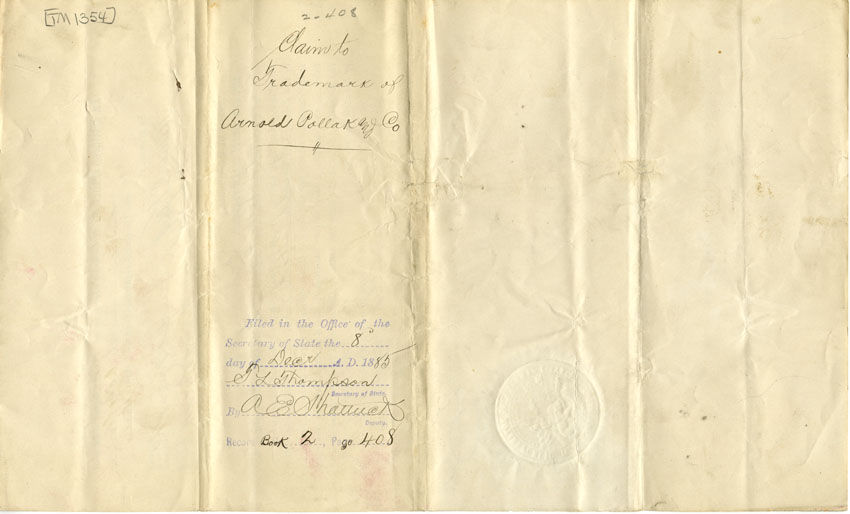 [TM 1354]
2-408
Claim to
Trademark of
Arnold Pollak & Co
Filed in the Office of the
Secretary of State the 8
day of Decr A. D. 1885
T L Thompson
Secretary of State
By A E Shattuck
Deputy.
Record Book 2, Page 408